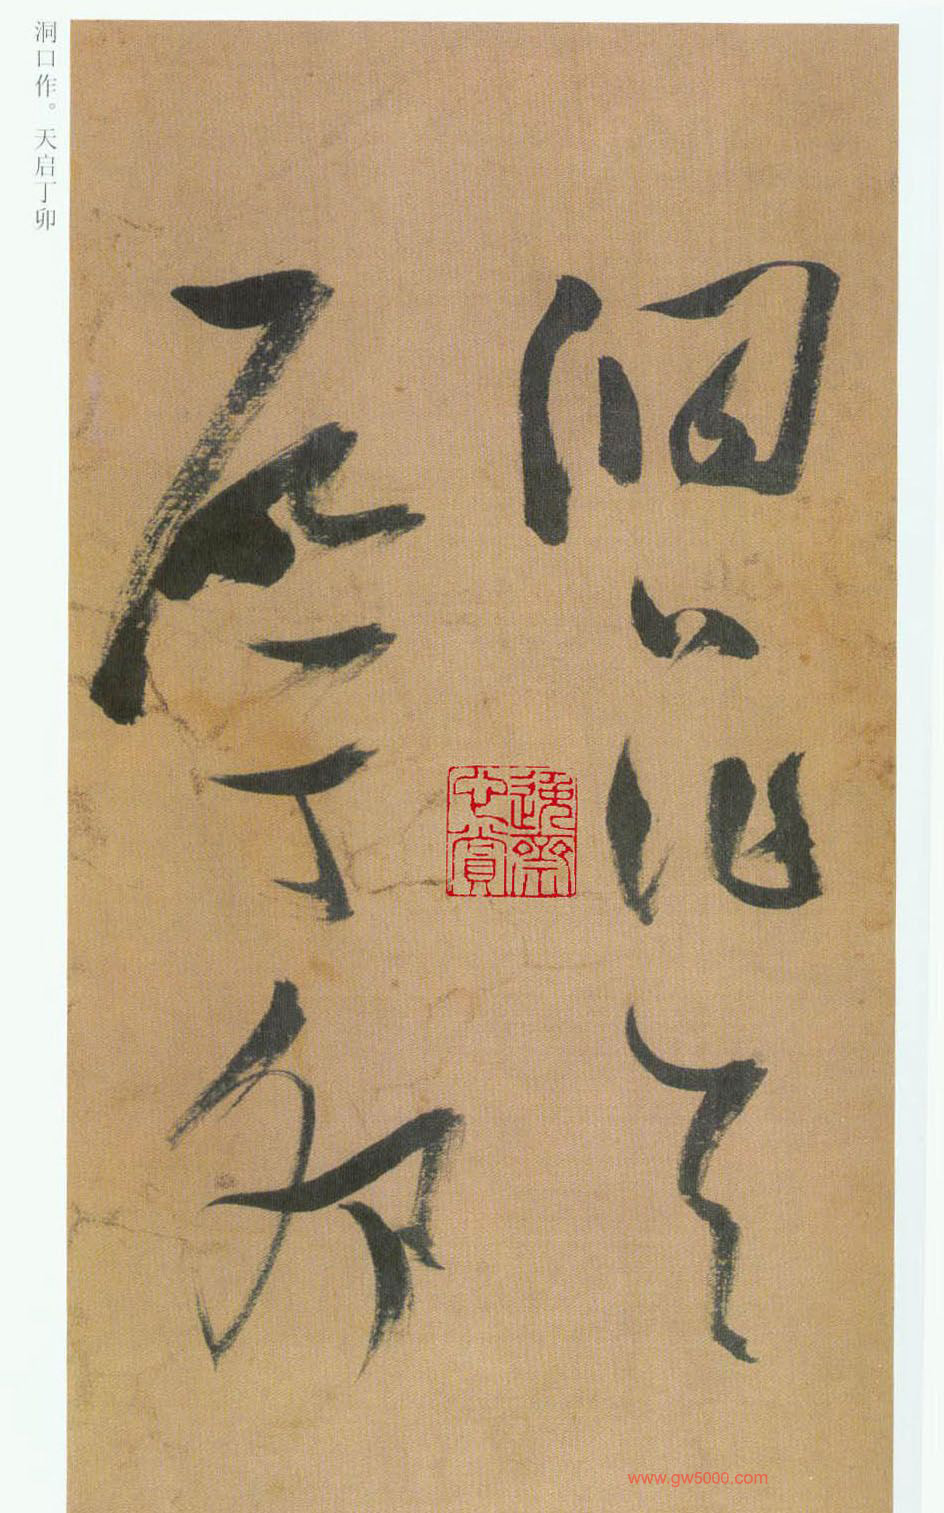 洞口作天
啓丁卯
洞口作。天启丁卯
www.gw5000.com